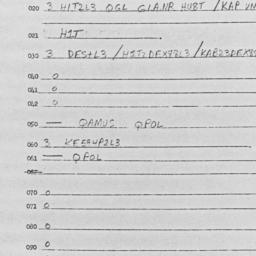 020 3 HIT2L3 OGL GIANR HU8T /KAP
021 HIT
030 3 DES+L3 /HIT2DEX72L3/KAP23DEX8
040 0
041 0
042 0
050 — QAMUS QPOL
060 3 KESRUP2L3
061 — QPOL
062
070 0
071 0
080 0
090 0